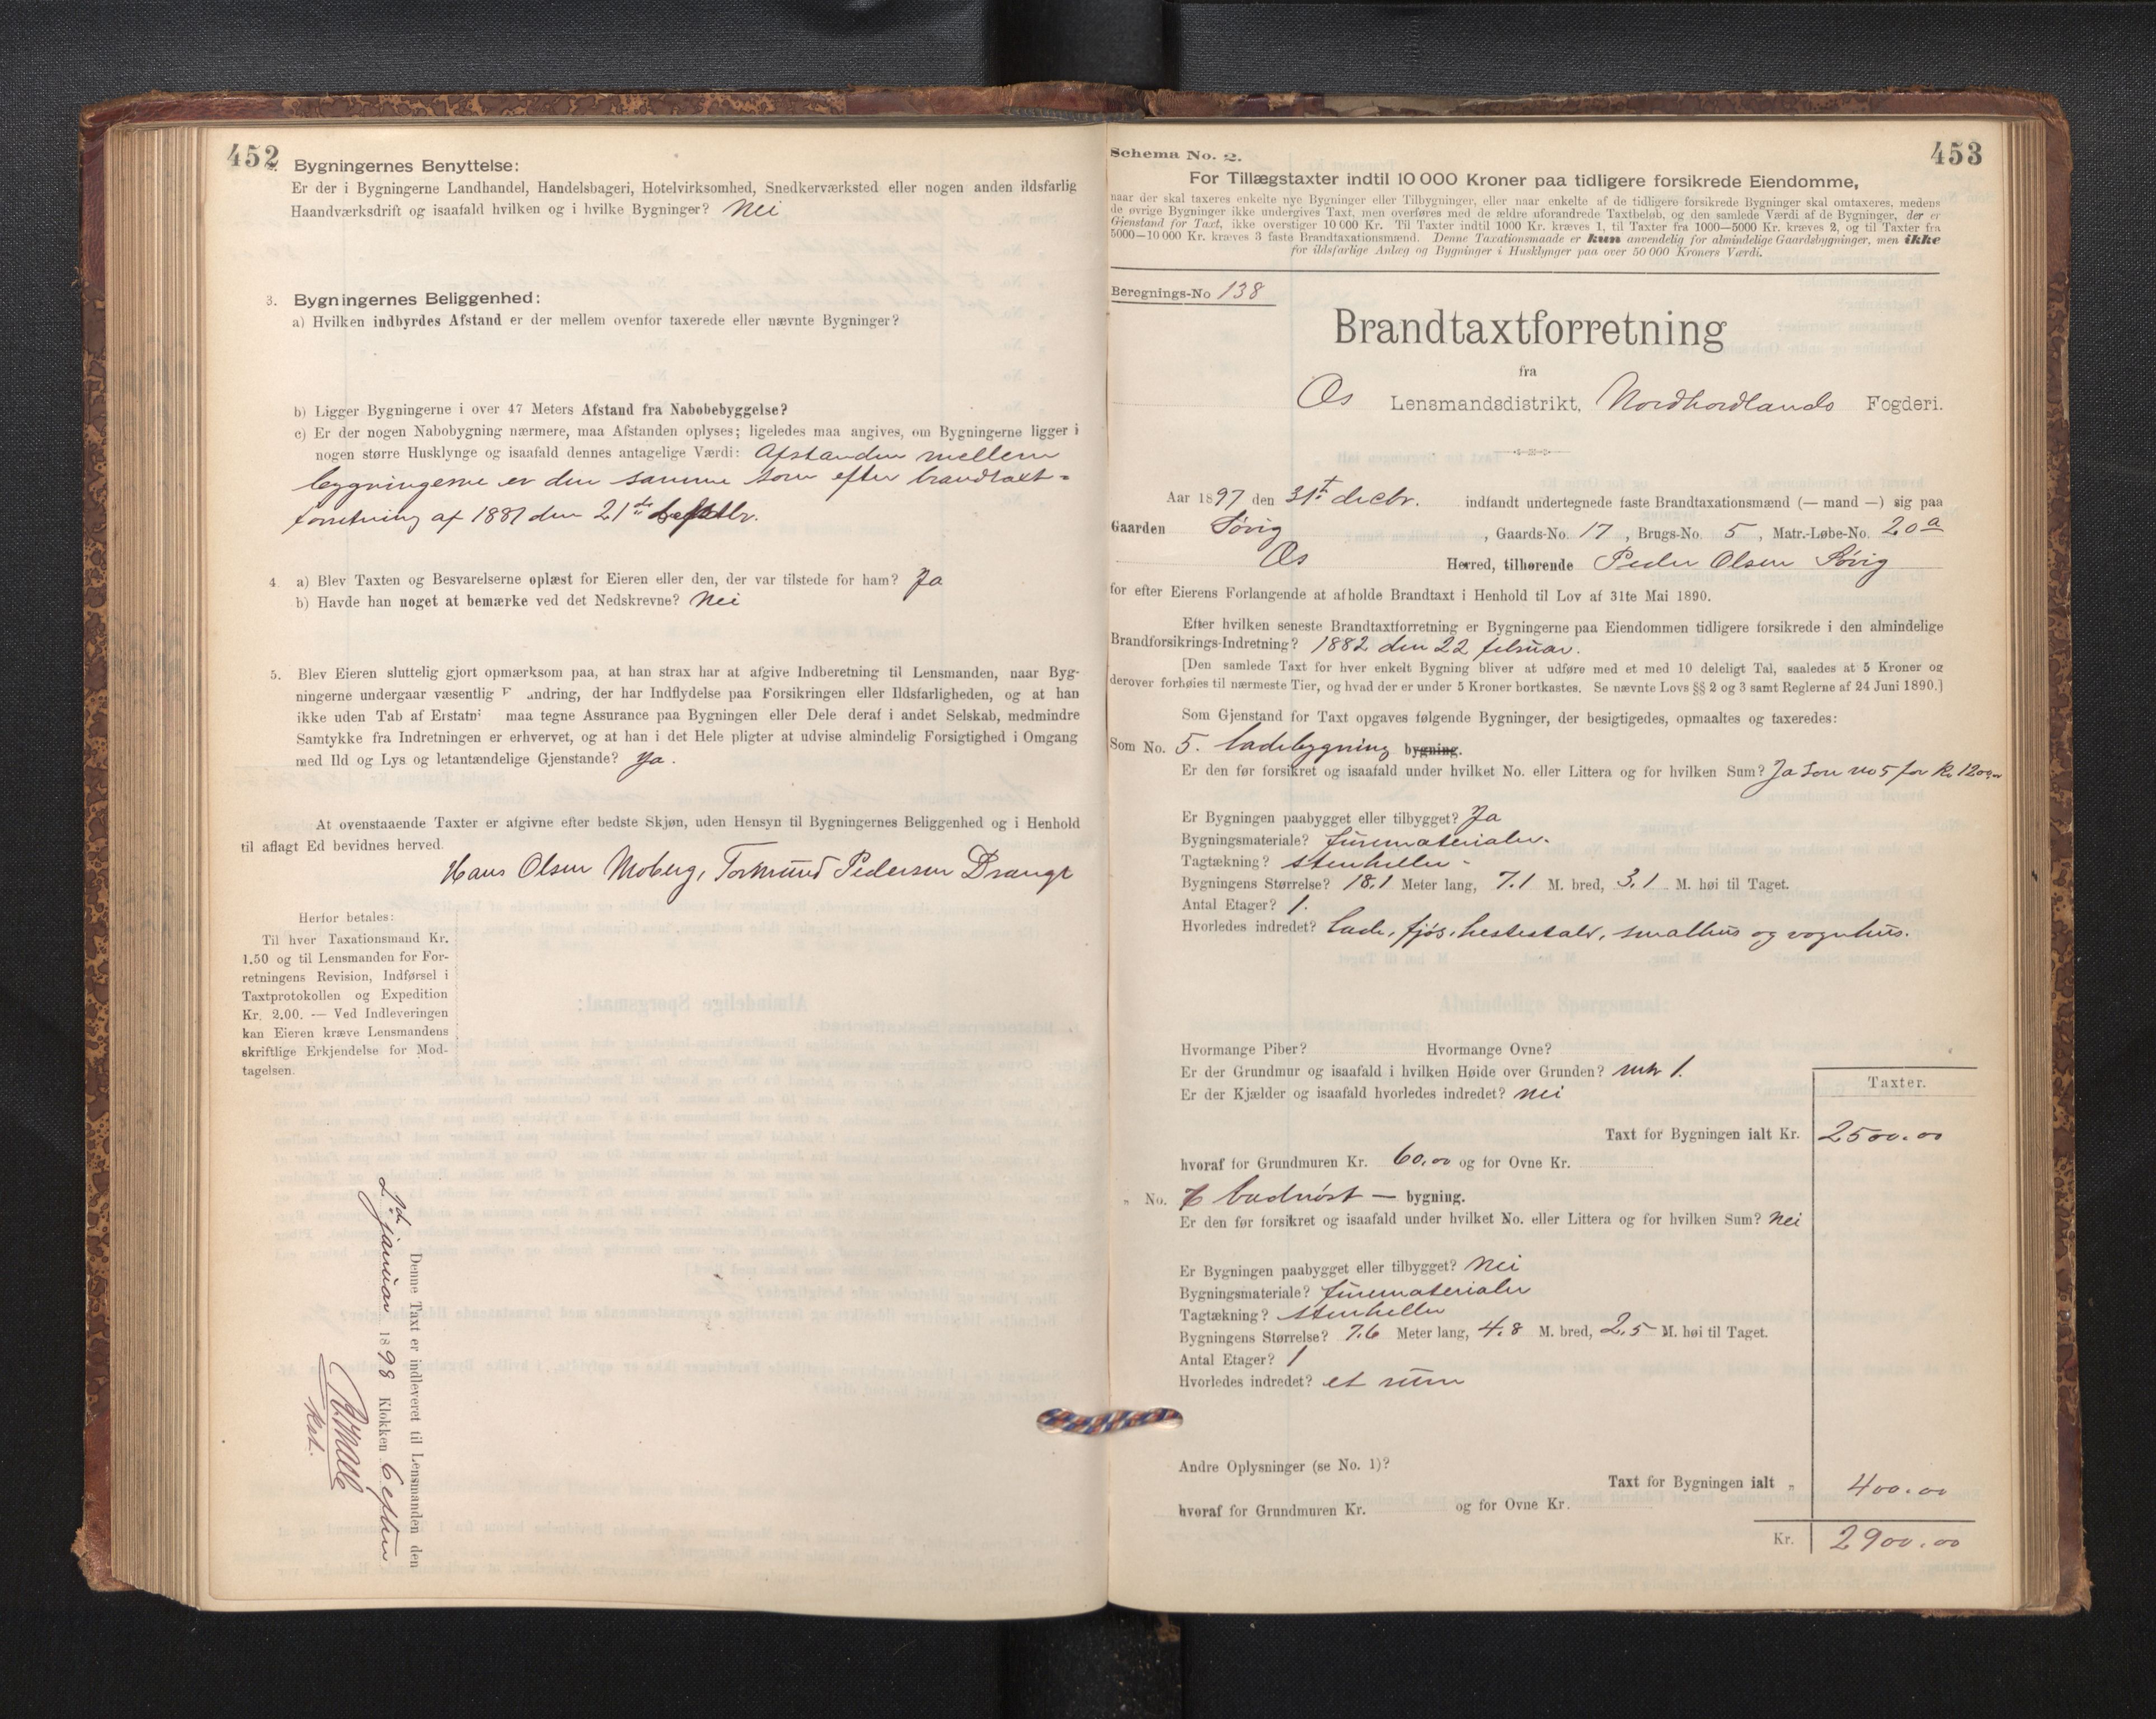 452
2. Bygningernes Benyttelse:
Er der i Bygningerne Landhandel, Handelsbageri, Hotelvirksomhed, Snedkerværksted eller nogen anden ildsfarlig
Haandværksdrift og isaafald hvilken og i hvilke Bygninger? Nei
3. Bygningernes Beliggenhed:
a) Hvilken indbyrdes Afstand er der mellem ovenfor taxerede eller nævnte Bygninger?
b) Ligger Bygningerne i over 47 Meters Afstand fra Nabobebyggelse?
c) Er der nogen Nabobygning nærmere, maa Afstanden oplyses; ligeledes maa angives, om Bygningerne ligger i
nogen større Husklynge og isaafald dennes antagelige Værdi: Afstanden mellem
bygningerne er den samme som efter brandtaxt-
forretning af 1881 den 21de
4. a) Blev Taxten og Besvarelserne oplæst for Eieren eller den, der var tilstede for ham? Ja
b) Havde han noget at bemærke ved det Nedskrevne? Nei
5. Blev Eieren sluttelig gjort opmærksom paa, at han strax har at afgive Indberetning til Lensmanden, naar Byg-
ningerne undergaar væsentlig F andring, der har Indflydelse paa Forsikringen eller Ildsfarligheden, og at han
ikke uden Tab af Erstatn maa tegne Assurance paa Bygningen eller Dele deraf i andet Selskab, medmindre
Samtykke fra Indretningen er erhvervet, og at han i det Hele pligter at udvise almindelig Forsigtighed i Omgang
med Ild og Lys og letantændelige Gjenstande? Ja.
At ovenstaaende Taxter er afgivne efter bedste Skjøn, uden Hensyn til Bygningernes Beliggenhed og i Henhold
til aflagt Ed bevidnes herved.
Hans Olsen Moberg, Tormund Pedersen Drange
Herfor betales:
Til hver Taxationsmand Kr.
1.50 og til Lensmanden for For-
retningens Revision, Indførsel i
Taxtprotokollen og Expedition
Kr. 2.00. — Ved Indleveringen
kan Eieren kræve Lensmandens
skriftlige Erkjendelse for Mod-
tagelsen.
Denne Taxt er indleveret til Lensmanden den
2d januar 1898 Klokken 6 efterm
453
Schema No. 2.
For Tillægstaxter indtil 10 000 Kroner paa tidligere forsikrede Eiendomme,
naar der skal taxeres enkelte nye Bygninger eller Tilbygninger, eller naar enkelte af de tidligere forsikrede Bygninger skal omtaxeres, medens
de øvrige Bygninger ikke undergives Taxt, men overføres med de ældre uforandrede Taxtbeløb, og den samlede Værdi af de Bygninger, der er
Gjenstand for Taxt, ikke overstiger 10 000 Kr. Til Taxter indtil 1000 Kr. kræves 1, til Taxter fra 1000—5000 Kr. kræves 2, og til Taxter fra
5000—10 000 Kr. kræves 3 faste Brandtaxationsmænd. Denne Taxationsmaade er kun anvendelig for almindelige Gaardsbygninger, men ikke
for ildsfarlige Anlæg og Bygninger i Husklynger paa over 50 000 Kroners Værdi.
Beregnings-No 138
Brandtaxtforretning
fra
Os Lensmandsdistrikt, Nordhordlands Fogderi.
Aar 1897 den 31t decbr. indfandt undertegnede faste Brandtaxationsmænd (— mand —) sig paa
Gaarden Søvig, Gaards-No. 17, Brugs-No. 5, Matr.-Løbe-No. 20a
Os Herred, tilhørende Peder Olsen Søvig
for efter Eierens Forlangende at afholde Brandtaxt i Henhold til Lov af 31te Mai 1890.
Efter hvilken seneste Brandtaxtforretning er Bygningerne paa Eiendommen tidligere forsikrede i den almindelige
Brandforsikrings-Indretning? 1882 den 22 februar.
[Den samlede Taxt for hver enkelt Bygning bliver at udføre med et med 10 deleligt Tal, saaledes at 5 Kroner og
derover forhøies til nærmeste Tier, og hvad der er under 5 Kroner bortkastes. Se nævnte Lovs §§ 2 og 3 samt Reglerne af 24 Juni 1890.]
Som Gjenstand for Taxt opgaves følgende Bygninger, der besigtigedes, opmaaltes og taxeredes:
Som No. 5. Ladebygning bygning.
Er den før forsikret og isaafald under hvilket No. eller Littera og for hvilken Sum? Ja som no 5 for Kr 1200,00
Er Bygningen paabygget eller tilbygget? Ja
Bygningsmateriale? furematerialer.
Tagtækning? stenheller.
Bygningens Størrelse? 18.1 Meter lang, 7.1 M. bred, 3.1 M. høi til Taget.
Antal Etager? 1.
Hvorledes indredet? Lade, fjøs, hestestald, smalhus og vognhus.
Hvormange Piber? Hvormange Ovne?
Er der Grundmur og isaafald i hvilken Høide over Grunden? mtr 1.
Er der Kjælder og isaafald hvorledes indredet? Nei
Taxter.
Taxt for Bygningen ialt Kr. 2500.00
hvoraf for Grundmuren Kr. 60,00 og for Ovne Kr.
„ No. 6 baadnøst — bygning.
Er den før forsikret og isaafald under hvilket No. eller Littera og for hvilken Sum? Nei
Er Bygningen paabygget eller tilbygget? Nei
Bygningsmateriale? furematerialer
Tagtækning? stenheller
Bygningens Størrelse? 7.6 Meter lang, 4.8 M. bred, 2.5 M. høi til Taget.
Antal Etager? 1
Hvorledes indredet? et rum
Andre Oplysninger (se No. 1)?
Taxt for Bygningen ialt „ 400.00
hvoraf for Grundmuren Kr. og for Ovne Kr.
Kr. 2900.00